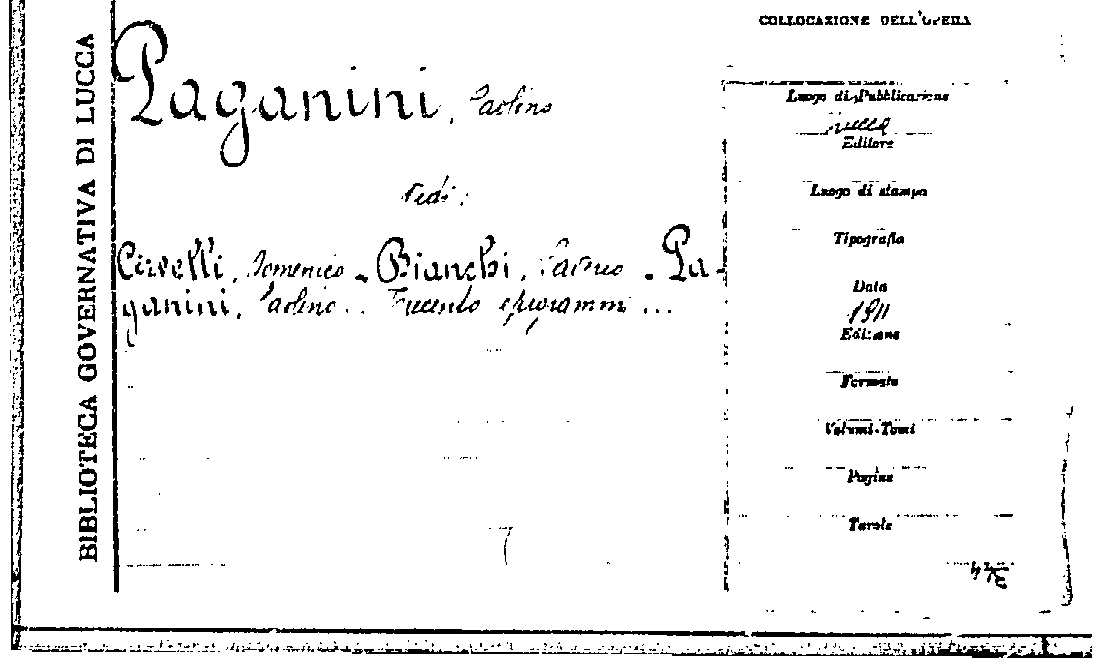 BIBLIOTECA GOVERNATIVA DI LUCCA
COLLOCAZIONE DELL'OPERA
Paganini, Paolino
Vedi:
Civelli, Domenico - Bianchi, - Pa-
ganini, Paolino... Trecento epigrammi ...
Luogo di Pubblicazione
Lucca
Editore
Luogo di stampa
Tipografia
Data
1811
Edizione
Formato
Volumi-Tomi
Pagine
Tavole